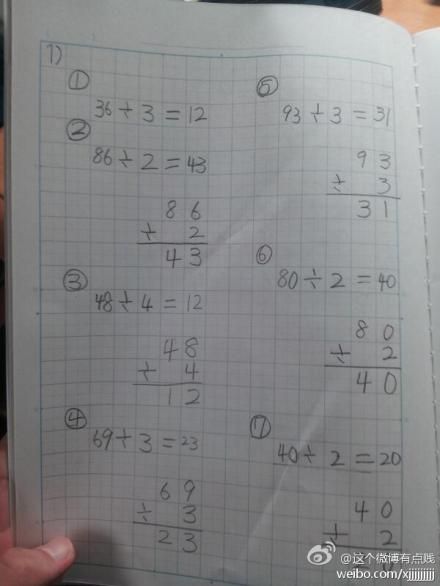 1)
①
36÷3=12
②
86÷2=43
86
÷ 2
43
③
48÷4=12
48
÷ 4
12
④
69÷3=23
69
÷ 3
23
⑤
93÷3=31
93
÷ 3
31
⑥
80÷2=40
80
÷ 2
40
⑦
40÷2=20
40
÷ 2
@这个微博有点贱
weibo.com/xjjjjjjjj